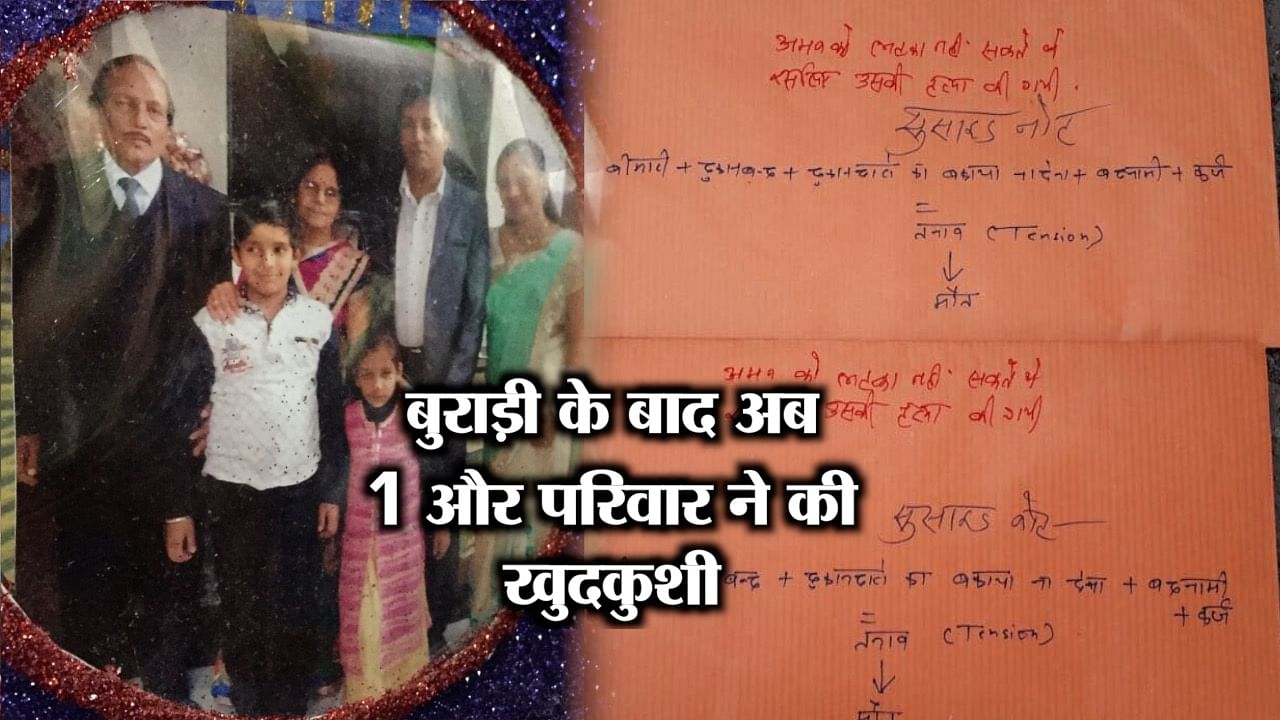 अमन को लटका नहीं सकते थे
इसलिए उसकी हत्या की गयी.
सुसाइड नोट
बीमारी + दुकान बन्द + दुकानदारों का बकाया ना देना + बदनामी + कर्ज
=
तनाव (Tension)
↓
मौत
अमन को लटका नहीं सकते थे
उसकी हत्या की गयी
सुसाइड नोट
बन्द + दुकानदारों का बकाया ना देना + बदनामी
+ कर्ज
=
तनाव (Tension)
↓
मौत
बुराड़ी के बाद अब
1 और परिवार ने की
खुदकुशी